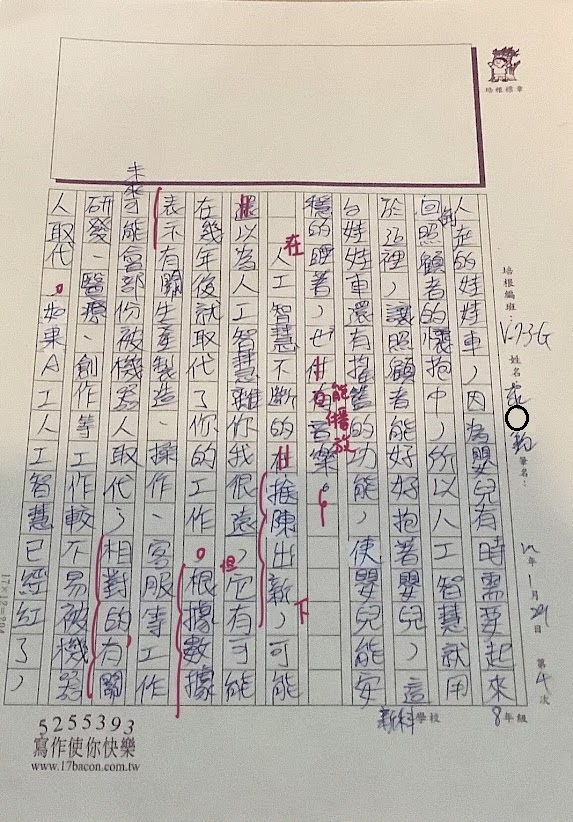 培根標章
培根編班：V-73-G 姓名 筆名：
年1月29日 第4次
新科學校 8年級
人在的娃娃車，因為嬰兒有時需要起來
回照顧者的懷抱中，所以人工智慧就用
於這裡，讓照顧者能好好抱著嬰兒，這
台娃娃車還有搖籃的功能，使嬰兒能安
穩的睡著，也能播放音樂。
人工智慧不斷的在推陳出新，可能
還以為人工智慧離你我很遠，但它有可能
在幾年後就取代了你的工作。根據數據
表示有關生產製造、操作、客服等工作
未來可能會部份被機器人取代了，相對的有關
研發、醫療、創作等工作較不易被機器
人取代。如果AI人工智慧已經紅了，
在
下
17×12=204
5255393
寫作使你快樂
www.17bacon.com.tw